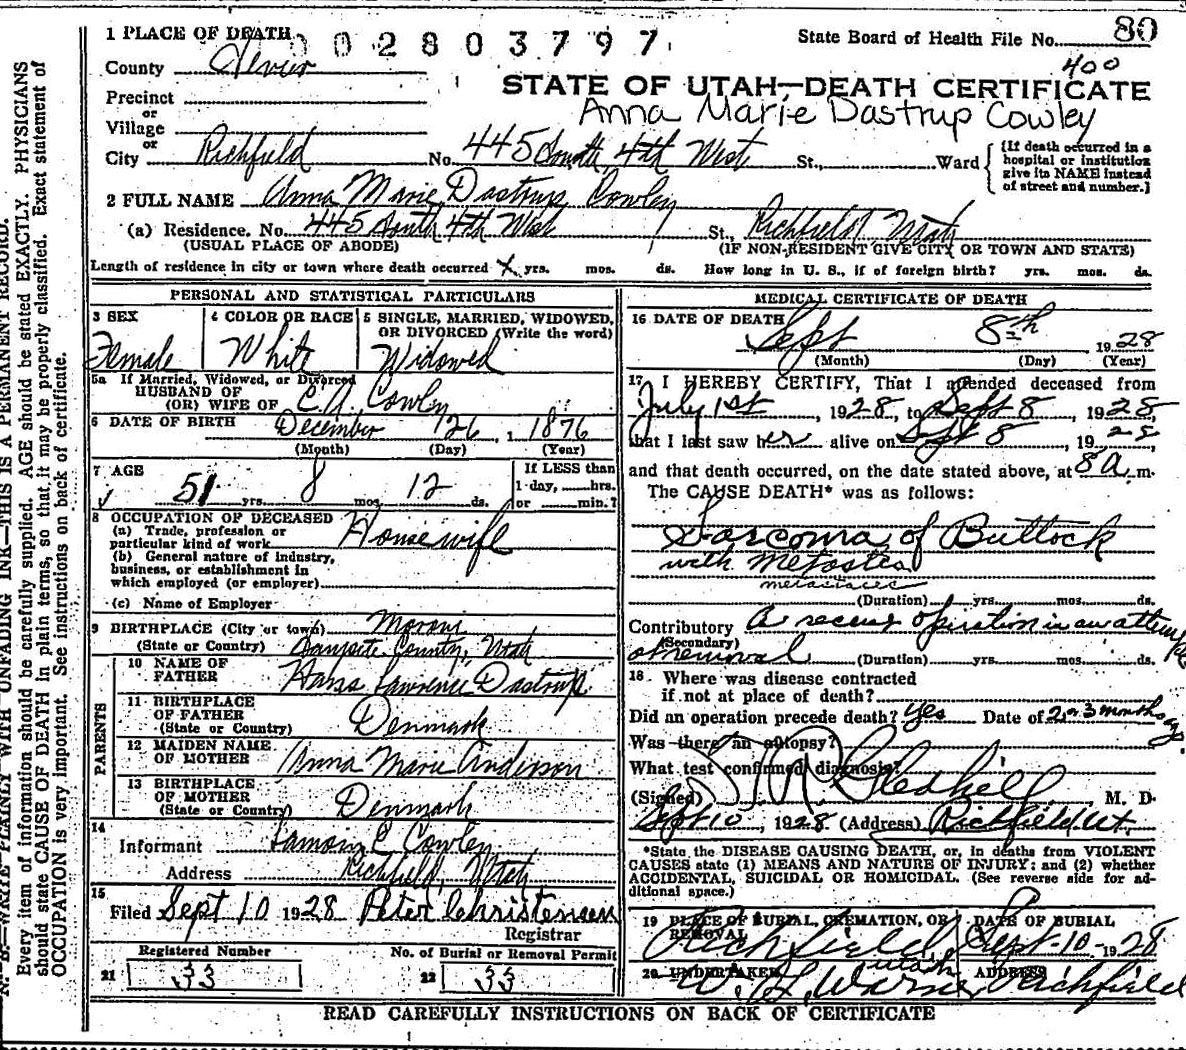 1 PLACE OF DEATH
002803797
State Board of Health File No. 80
400
County Sevier
STATE OF UTAH—DEATH CERTIFICATE
Precinct
Anna Marie Dastrup Cowley
or
Village
or
City Richfield No. 445 South 4th West St., Ward
{If death occurred in a hospital or institution give its NAME instead of street and number.}
2 FULL NAME Anna Marie Dastrup Cowley
(a) Residence. No. 445 South 4th West St., Richfield Utah
(USUAL PLACE OF ABODE) (IF NON-RESIDENT GIVE CITY OR TOWN AND STATE)
Length of residence in city or town where death occurred yrs. mos. ds. How long in U. S., if of foreign birth? yrs. mos. ds.
PERSONAL AND STATISTICAL PARTICULARS
3 SEX 4 COLOR OR RACE 5 SINGLE, MARRIED, WIDOWED,
OR DIVORCED (Write the word)
Female White Widowed
5a If Married, Widowed, or Divorced
HUSBAND OF
(OR) WIFE OF Cowley
6 DATE OF BIRTH December 26, 1876
(Month) (Day) (Year)
7 AGE If LESS than
51 yrs. 8 mos. 12 ds. 1 day, hrs.
or min.?
8 OCCUPATION OF DECEASED
(a) Trade, profession or
particular kind of work Housewife
(b) General nature of industry,
business, or establishment in
which employed (or employer)
(c) Name of Employer
9 BIRTHPLACE (City or town) Moroni
(State or Country) Sanpete County, Utah
PARENTS
10 NAME OF
FATHER Hans Lawrence Dastrup
11 BIRTHPLACE
OF FATHER Denmark
(State or Country)
12 MAIDEN NAME
OF MOTHER Anna Marie Anderson
13 BIRTHPLACE
OF MOTHER Denmark
(State or Country)
14
Informant Lamoni C Cowley
Address Richfield, Utah
15
Filed Sept 10 1928 Peter Christensen
Registrar
Registered Number No. of Burial or Removal Permit
21 33 22 33
MEDICAL CERTIFICATE OF DEATH
16 DATE OF DEATH
Sept 8th 1928
(Month) (Day) (Year)
17 I HEREBY CERTIFY, That I attended deceased from
July 1st, 1928, to Sept 8, 1928,
that I last saw her alive on Sept 8, 1928
and that death occurred, on the date stated above, at 8 a. m.
The CAUSE DEATH* was as follows:
Sarcoma of Buttock
with Metastea
metastases
(Duration) yrs. mos. ds.
Contributory A recent operation in an attempt
(Secondary)
at removal (Duration) yrs. mos. ds.
18 Where was disease contracted
if not at place of death?
Did an operation precede death? yes Date of 2 or 3 months ago
Was there an autopsy?
What test confirmed diagnosis?
(Signed) Gledhill M. D.
Sept 10, 1928 (Address) Richfield Ut.
*State the DISEASE CAUSING DEATH, or, in deaths from VIOLENT
CAUSES state (1) MEANS AND NATURE OF INJURY; and (2) whether
ACCIDENTAL, SUICIDAL OR HOMICIDAL. (See reverse side for ad-
ditional space.)
19 PLACE OF BURIAL, CREMATION, OR
REMOVAL DATE OF BURIAL
Richfield, Utah Sept-10-1928
20 UNDERTAKER ADDRESS
Warner Richfield
READ CAREFULLY INSTRUCTIONS ON BACK OF CERTIFICATE
N. B.—WRITE PLAINLY WITH UNFADING INK—THIS IS A PERMANENT RECORD.
Every item of information should be carefully supplied. AGE should be stated EXACTLY. PHYSICIANS
should state CAUSE OF DEATH in plain terms, so that it may be properly classified. Exact statement of
OCCUPATION is very important. See instructions on back of certificate.